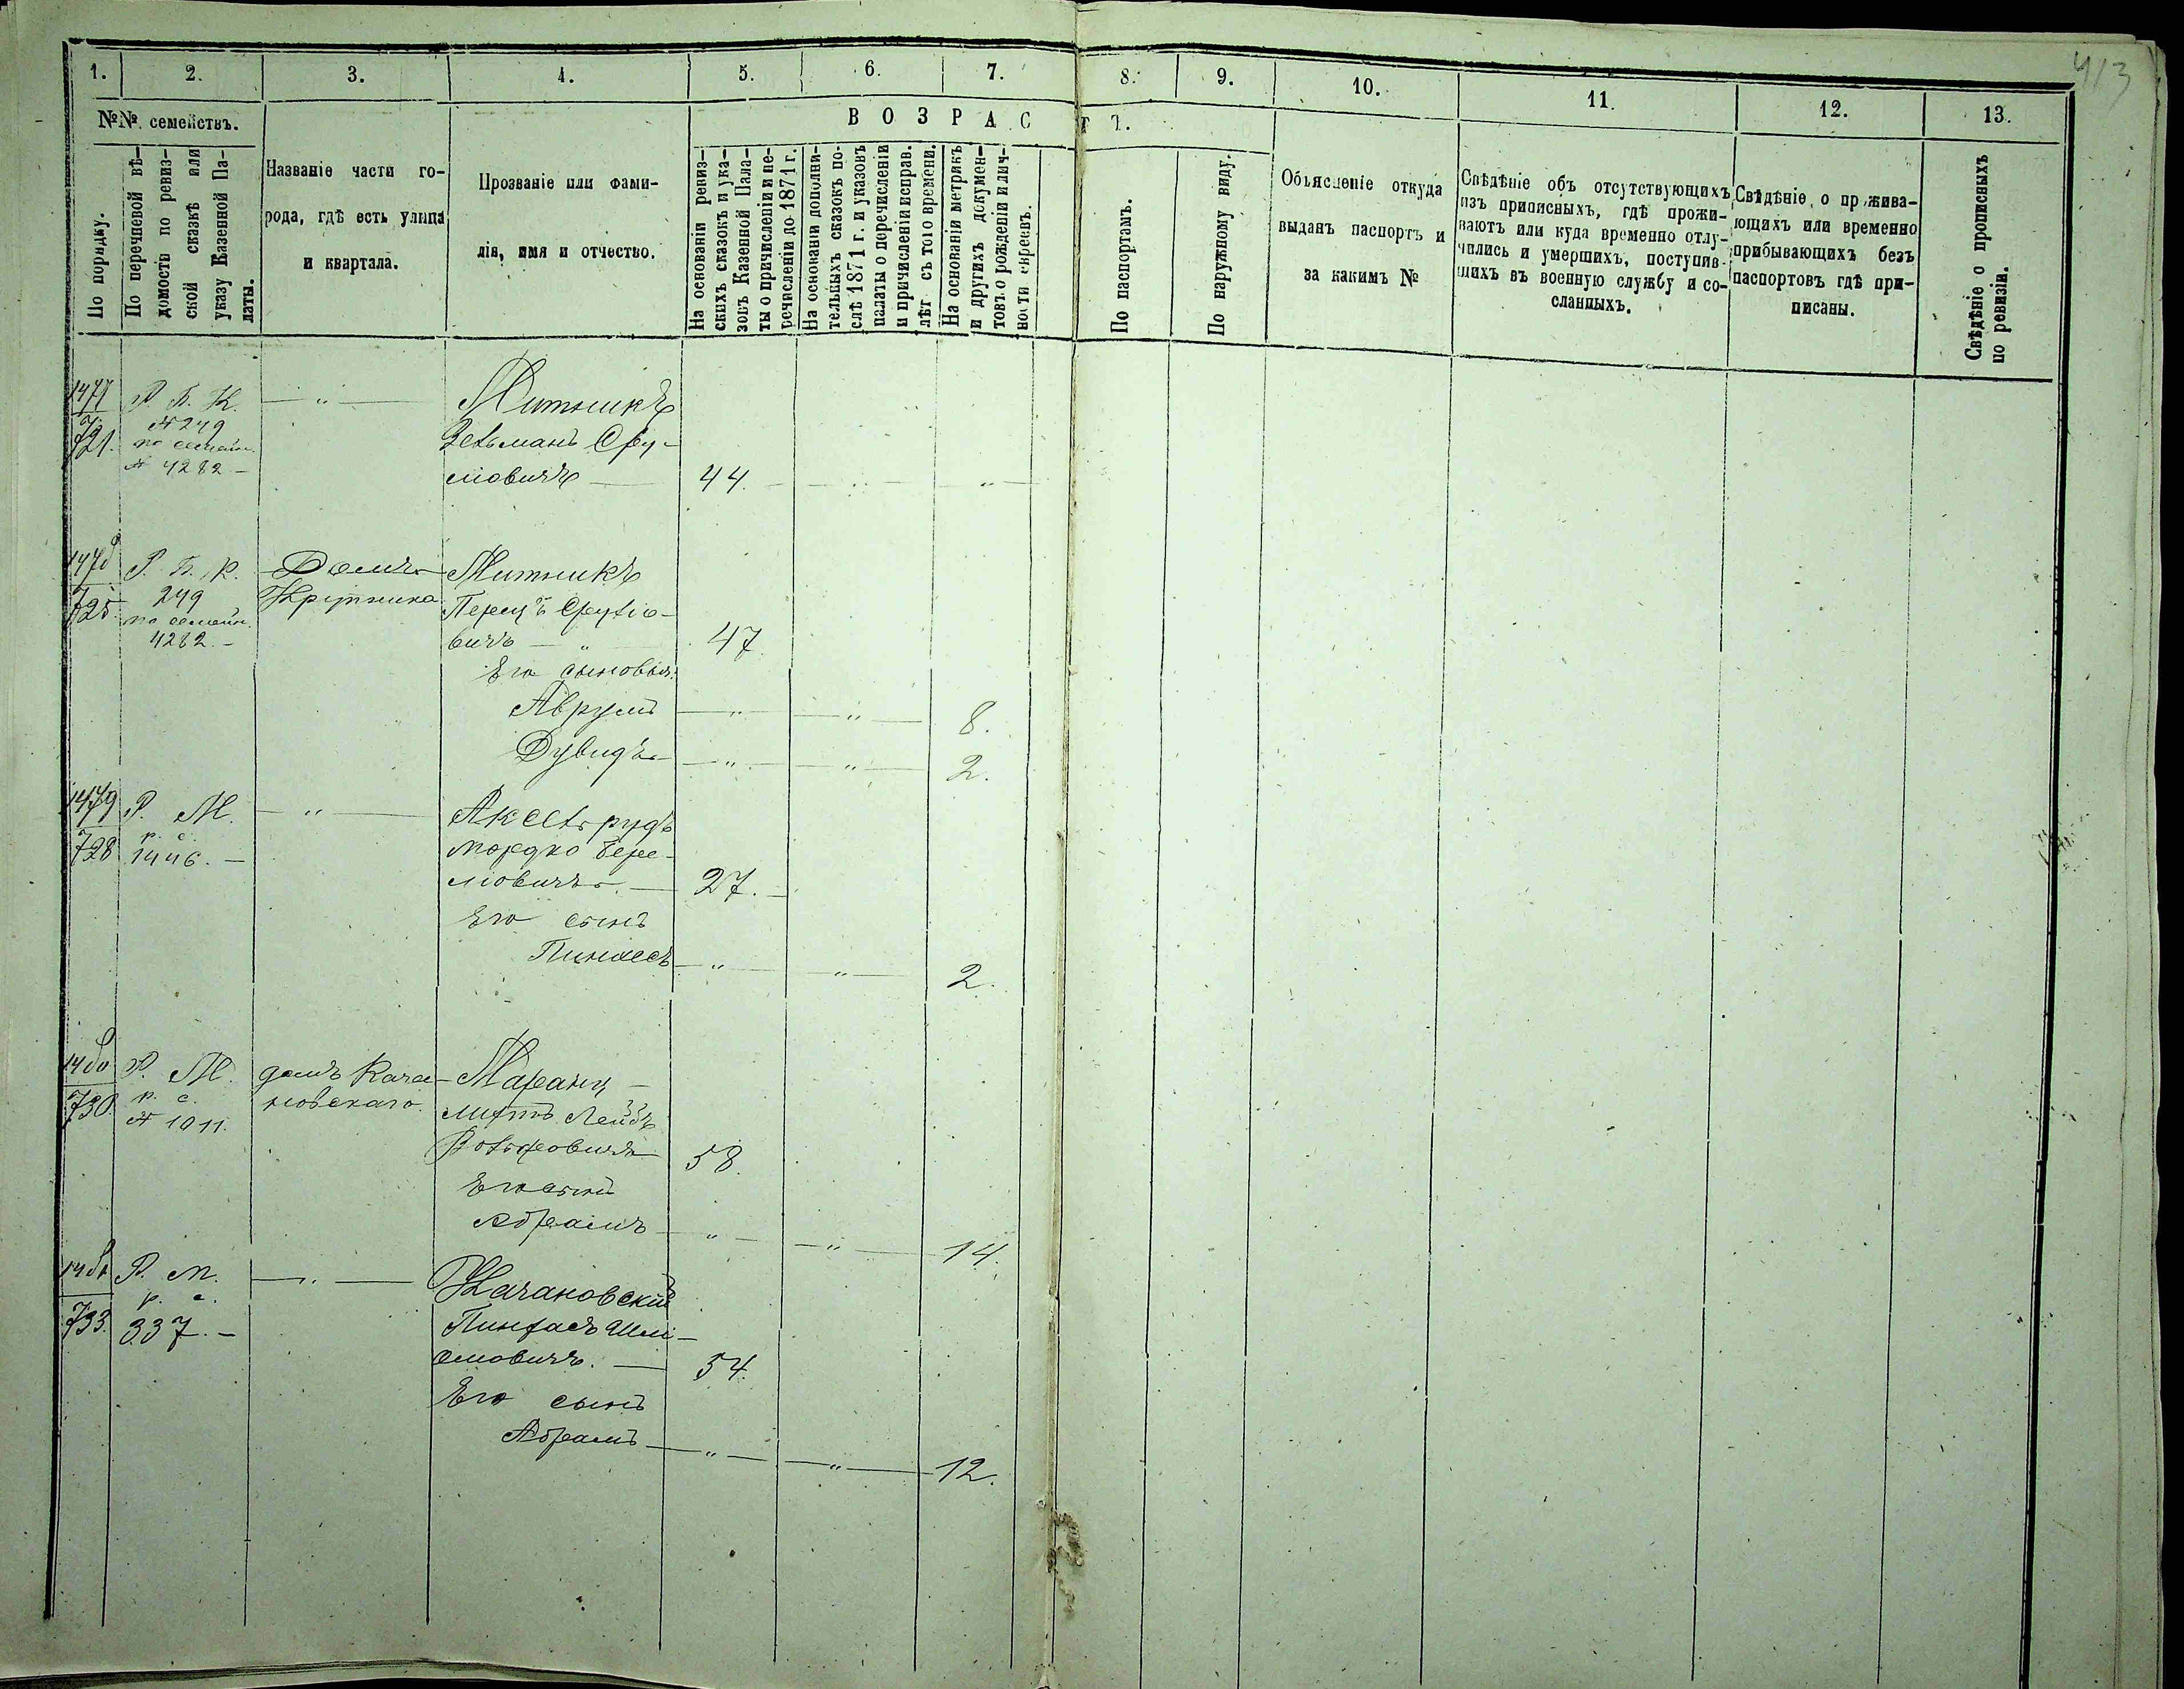 413
1. 2. 3. 4. 5. 6. 7. 8. 9. 10. 11. 12. 13.
№№ семействъ.
По порядку.
По перечневой вѣ-
домость по ревиз-
ской сказкѣ или
указу Казенной Па-
латы.
Названіе части го-
рода, гдѣ есть улица
и квартала.
Прозваніе или фами-
лія, имя и отчество.
ВОЗРАСТЪ.
На основаніи ревиз-
скихъ сказокъ и ука-
зовъ Казенной Пала-
ты о причисленіи и пе-
речисленіи до 1871 г.
На основаніи дополни-
тельныхъ сказокъ по-
слѣ 1871 г. и указовъ
палаты о перечисленіи
и причисленіи исправ.
лѣт съ того времени.
На основаніи метрикъ
и другихъ докумен-
товъ о рожденіи и лич-
ности евреевъ.
По паспортамъ.
По наружному виду.
Объясненіе откуда
выданъ паспортъ и
за какимъ №
Свѣдѣніе объ отсутствующихъ
изъ приписныхъ, гдѣ прожи-
ваютъ или куда временно отлу-
чились и умершихъ, поступив-
шихъ въ военную службу и со-
сланныхъ.
Свѣдѣніе о прожива-
ющихъ или временно
прибывающихъ безъ
паспортовъ гдѣ при-
писаны.
Свѣдѣніе о прописныхъ
по ревизіи.
1477 Р. Б. К. — " — Митникъ
721. № 249 Зельманъ Сру-
по семейн.
№ 4282 — мовичъ — 44. — " — " —
1478 Р. Б. К. Домъ Митникъ
725. 249 Крупника Перецъ Срулiо-
по семейн.
4282. — вичъ — " 47.
Его сыновья:
Аврумъ — " — " — 8.
Дувидъ — " — " — 2.
1479 Р. М. — " — Аксельрудъ
728 р. с. Мордко Бере-
1446. —
лiовичъ. — 27. —
Его сынъ
Пинхасъ — " — " — 2.
1480 Р. М. домъ Кача- Маранц —
730. р. с. новскаго. Лейбъ
№ 1011.
Вольфовичъ 58.
Его сынъ
Абрамъ — " — " — 14.
1481 Р. М. — " — Качановскій
733. р. с. Пинхасъ Шлi-
337. —
омовичъ. — 54.
Его сынъ
Абрамъ — " — " — 12.